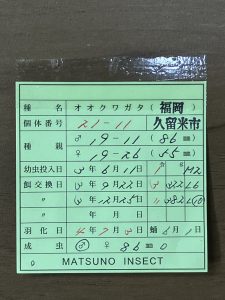 種名 オオクワガタ (福岡
個体番号 21-11 久留米市
種親 ♂ 19-11 (86㎜)
♀ 19-26 (55㎜)
幼虫投入日 3年6月11日
飼交換日 3年9月22日
3年12月25日
年 月 日
羽化日 4年7月3日 蛹6月1日
成虫 ♂ ♀ 86㎜
MATSUNO INSECT